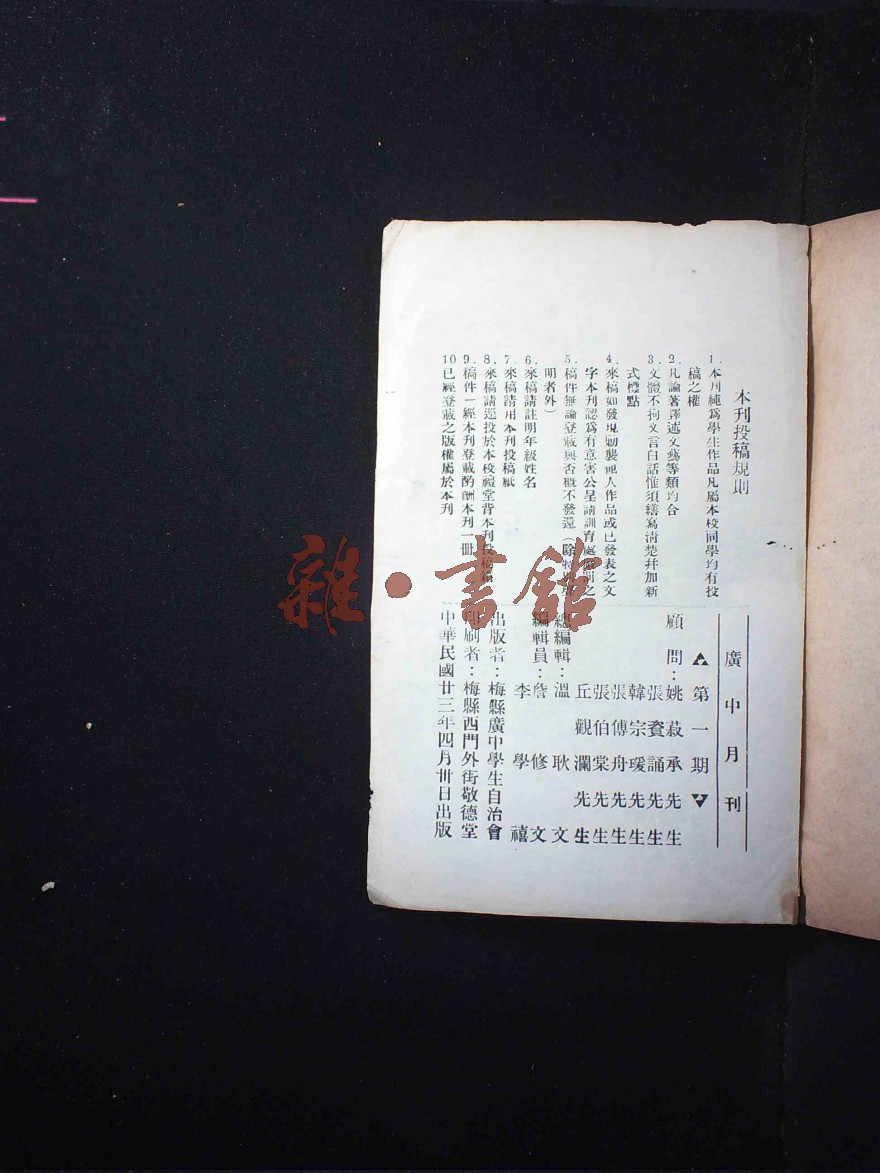 本刊投稿規則
1.本刊純爲學生作品凡屬本校同學均有投
稿之權
2.凡論著譯述文藝等類均合
3.文體不拘文言白話惟須繕寫淸楚幷加新
式標點
4.來稿如發現勦襲他人作品或已發表之文
字本刊認爲有意害公呈請訓育處
5.稿件無論登載與否概不發還（除特別聲
明者外）
6.來稿請註明年級姓名
7.來稿請用本刊投稿紙
8.來稿請逕投於本校禮堂背本刊投稿箱
9.稿件一經本刊登載酌酬本刊一冊
10已經登載之版權屬於本刊
廣中月刊
第一期
顧問：姚菽承先生
張資誦先生
韓宗瑗先生
張傅舟先生
張伯棠先生
丘觀瀾先生
總編輯：溫耿文
編輯員：詹修文
李學禧
出版者：梅縣廣中學生自治會
印刷者：梅縣西門外街敬德堂
中華民國廿三年四月卅日出版
雜·書館